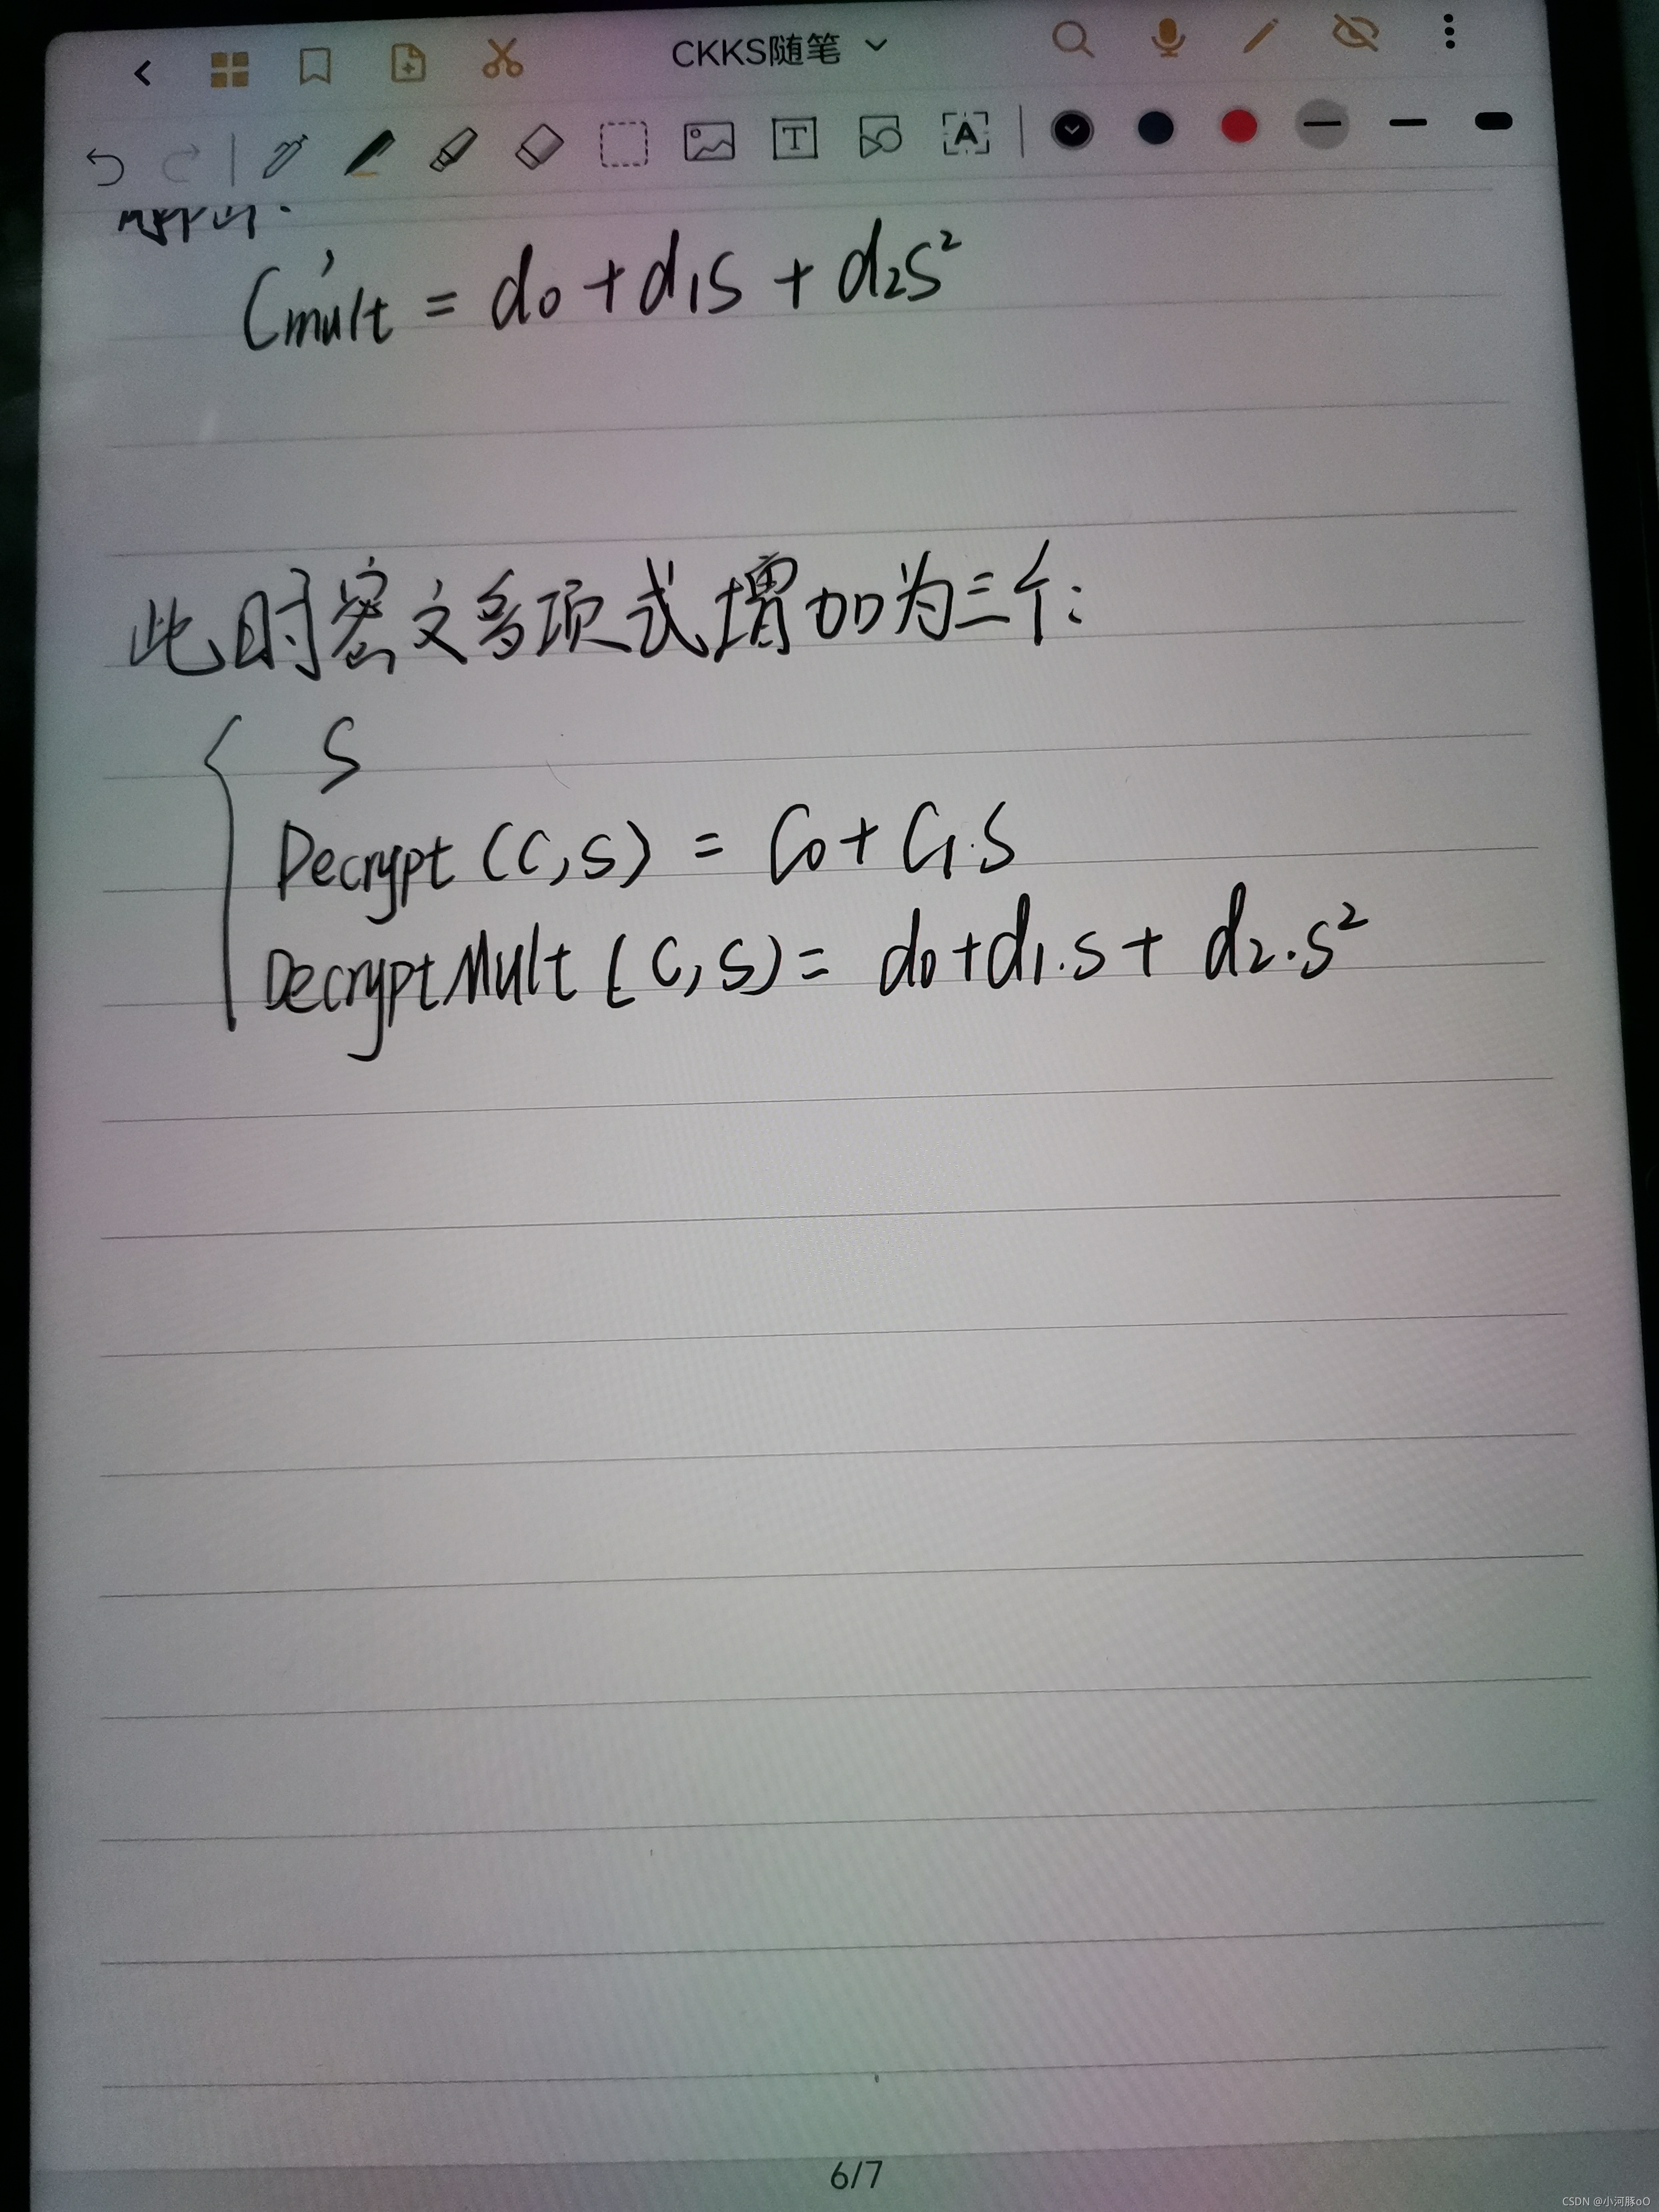 CKKS随笔
C'mult = d0 + d1s + d2s²
此时密文多项式增加为三个:
S
Decrypt (C,S) = C0 + C1·S
DecryptMult (C,S) = d0 + d1·s + d2·s²
6/7
CSDN @小河豚oO